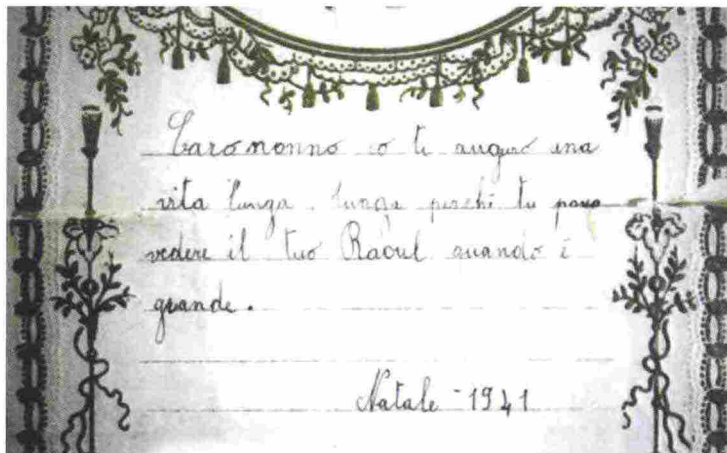 Caro nonno io ti auguro una
vita lunga lunga perchè tu possa
vedere il tuo Raoul quando è
grande.
Natale - 1941